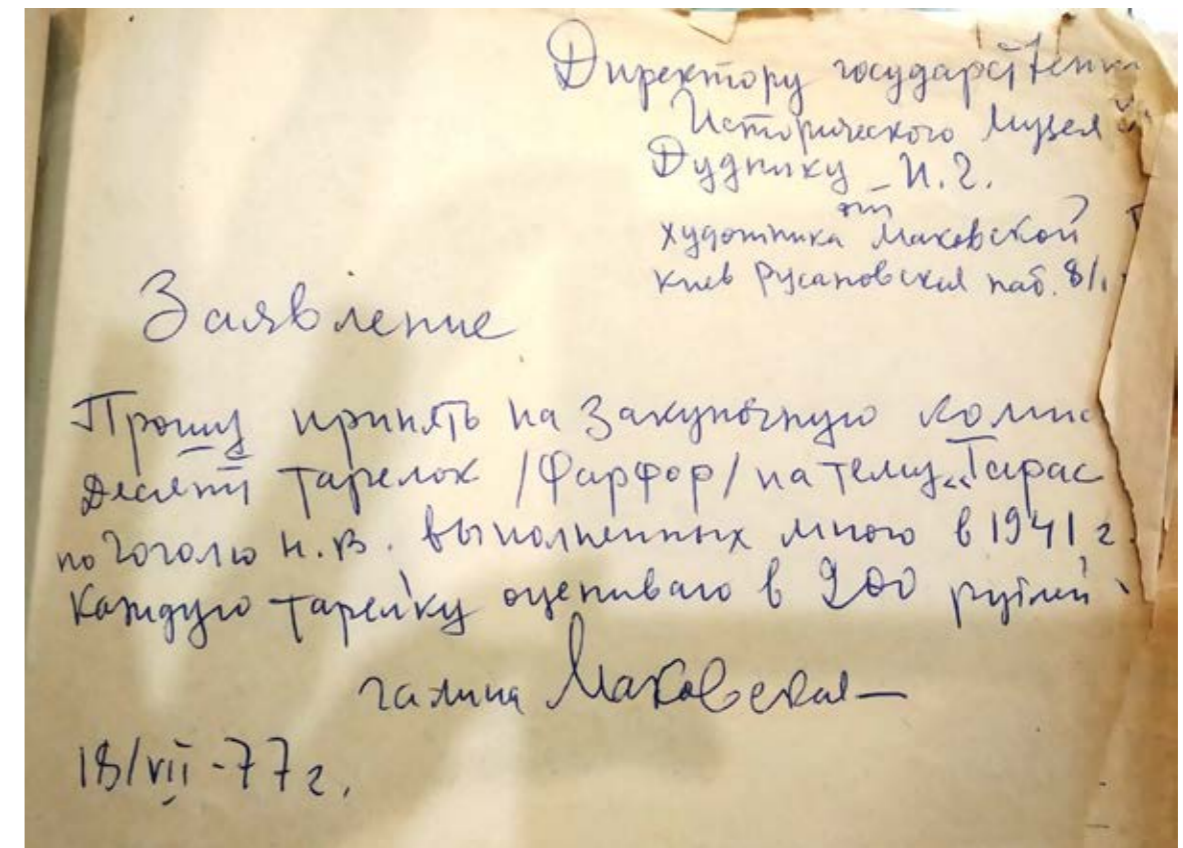 Директору государственно
Исторического музея
Дуднику И.Г.
от
художника Маковской Г
Киев Русановская наб. 8/1
Заявление
Прошу принять на закупочную комис
десять тарелок /фарфор/ на тему „Тарас
по Гоголю Н.В. выполненных мною в 1941 г
Каждую тарелку оцениваю в 200 рублей
галина Маковская
18/VII-77 г.